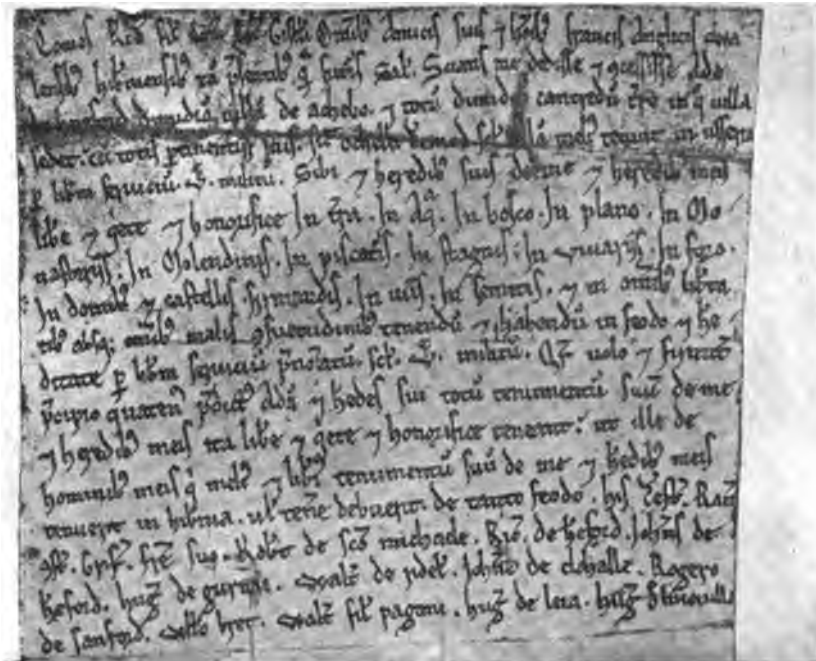 Comes Ric̄ fil̄ Com̄ Omnib; amicis suis ⁊ hōib; francis anglicis
lensib; hib̄niensib; tā p̄sentib; q̄ futuris Sal̄. Sciatis me dedisse ⁊ ꝯcessisse Ade
de hereford dimidiā uillā de achebo. ⁊ totū dimidiū cantredū t̄re in q̄ uilla
sedet. cū totis ꝑtinentiis suis. sic̄
ꝑ lib̄m seruiciū. militū. Sibi ⁊ heredib; suis de me ⁊ heredib; meis
lib̄e ⁊ q̄ete ⁊ honorifice In t̄ra. In Aq̄. In bosco. In plano. In Mo
nasteriis. In Molendinis. In piscariis. In stagnis. In uiuariis. In foro.
In domib; ⁊ castellis. In uiis. In semitis. ⁊ in omīb; lib̄ta
tib; absq; omīb; malis ꝯsuetudinib; tenendū ⁊ habendū in feodo ⁊ he
ditate ꝑ lib̄m seruiciū p̄notatū. scl̄. militū. Q̄r uolo ⁊ firmit̄
p̄cipio quaten̄ p̄dict̄ Adā ⁊ h̄edes sui totū tenementū suū de me
⁊ heredib; meis ita lib̄e ⁊ q̄ete ⁊ honorifice teneant. ut ille de
hominib; meis q̄ meli; ⁊ lib̄i; tenementū suū de me ⁊ h̄edib; meis
tenuerit in hib̄nia. ul̄ ten̄e debuerit. de tanto feodo. his Testib;. Raim̄
Grif̄. fr̄e suo. Rob̄t de sc̄o michaele. Ric̄. de h̄eford. Joh̄s de
h̄eford. hug̃ de gurnai. Walt̄ de ridel̄. Joh̄e de clohalle. Rogero
de sanford. Will̄o bret. Walt̄ fil̄ pagani. hug̃ de leia. hug̃